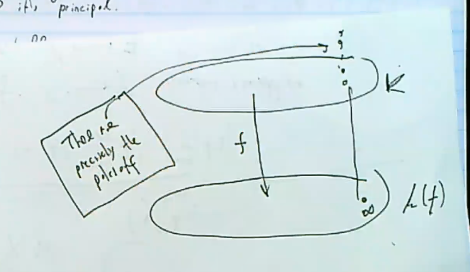 it's principal.
K
These are
precisely the
poles of f
f
∞
h(f)